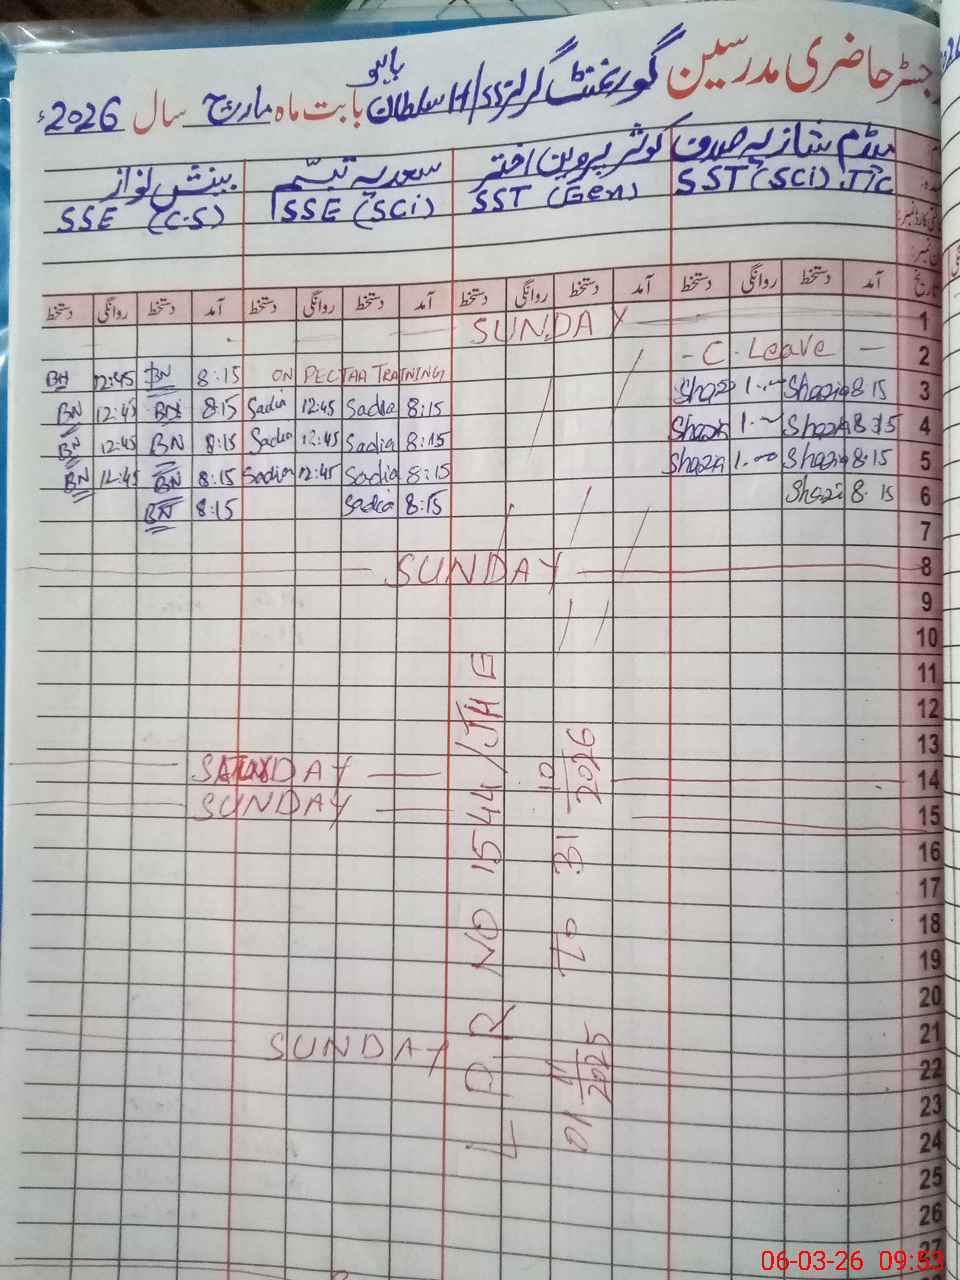 رجسٹر حاضری مدرسین گورنمنٹ گرلز H/SS سلطان باہو بابت ماہ مارچ سال 2026ء
میڈم شازیہ کوثر پروین اختر سعدیہ تبسّم بینش نواز
SST (SCi) ITC SST (Gen) SSE (SCi) SSE (C.S)
تاریخ آمد دستخط روانگی دستخط آمد دستخط روانگی دستخط آمد دستخط روانگی دستخط آمد دستخط روانگی دستخط
1 SUNDAY
2 - C. Leave -
BN 12:45 BN 8:15 ON PECTAA TRAINING Shazi 1.00 Shazia 8 15 3
BN 12:45 BN 8:15 Sadia 12:45 Sadia 8:15 Shazia 1.00 Shazia 8:15 4
BN 12:45 BN 8:15 Sadia 12:45 Sadia 8:15 Shazia 1.00 Shazia 8:15 5
BN 12:45 BN 8:15 Sadia 12:45 Sadia 8:15 Shazi 8. 15 6
BN 8:15 Sadia 8:15 7
SUNDAY 8
9
10
11
12
13
SATURDAY 14
SUNDAY 15
16
17
18
19
20
21
SUNDAY 22
23
24
25
26
27
L P R NO 1544/JHG
01/11/2025 To 31 10/2026
06-03-26 09:53